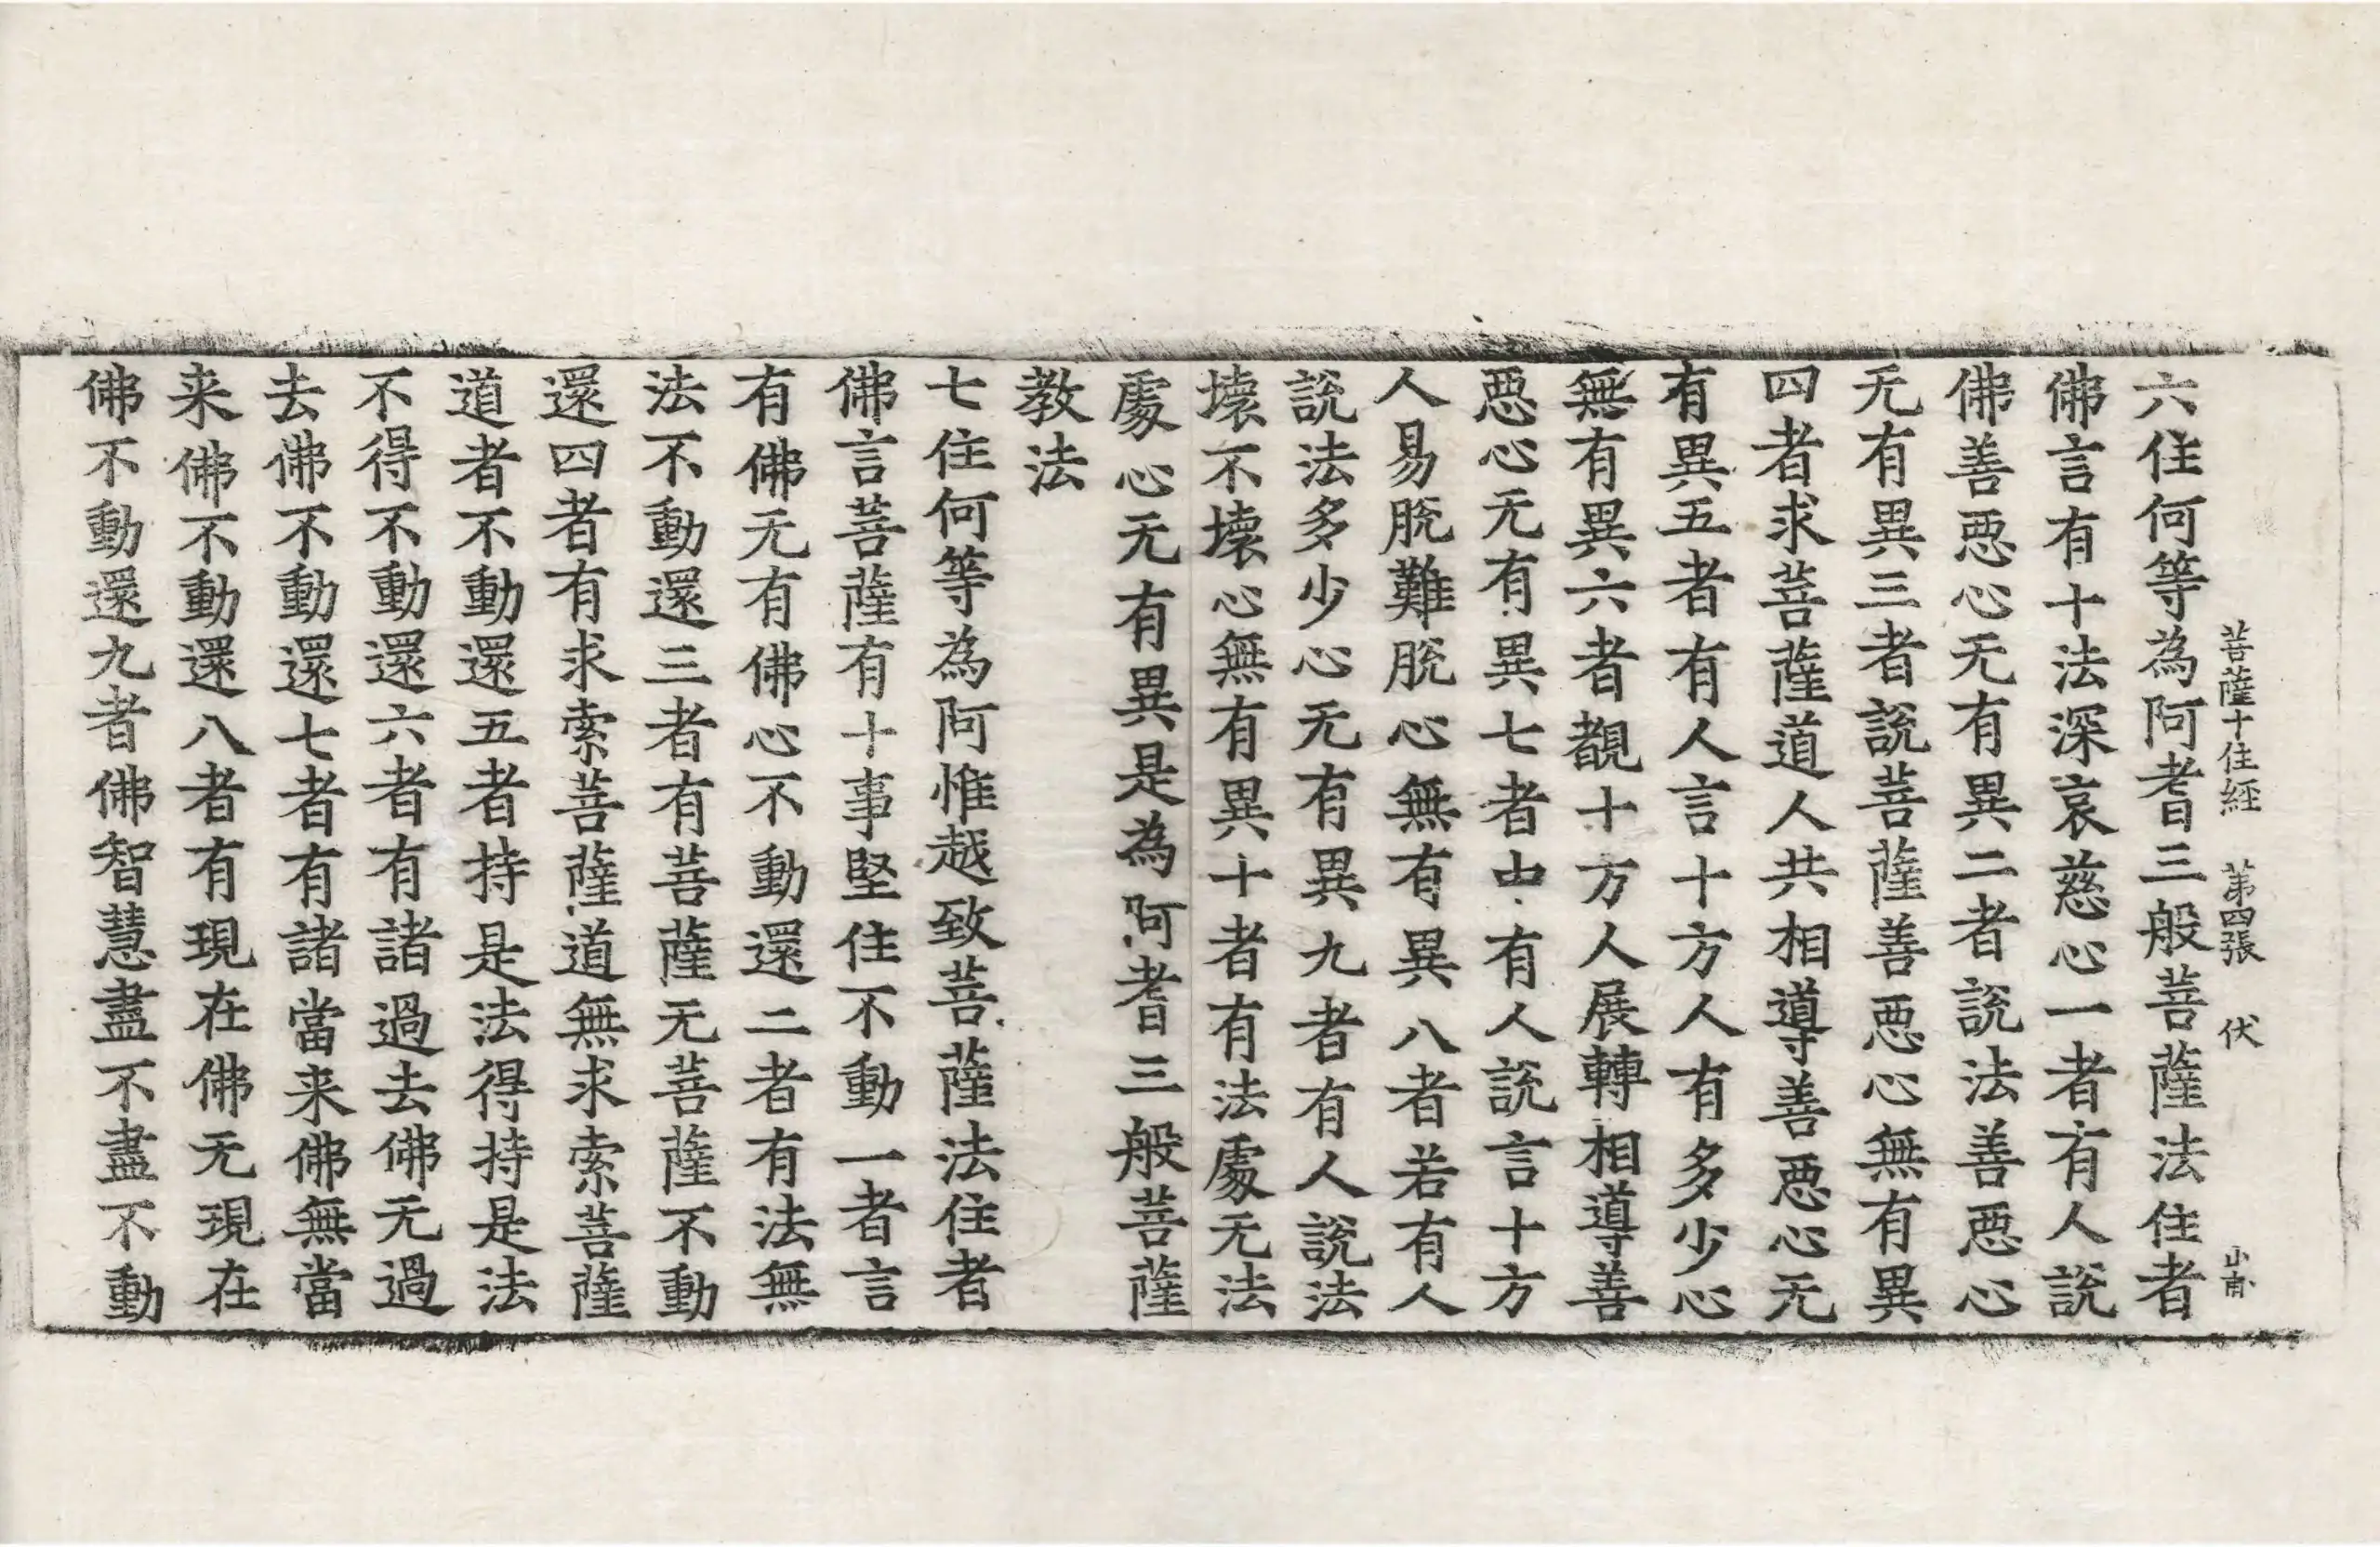 菩薩十住經 第四張 伏
六住何等為阿耆三般菩薩法住者
佛言有十法深哀慈心一者有人說
佛善惡心无有異二者說法善惡心
无有異三者說菩薩善惡心無有異
四者求菩薩道人共相導善惡心无
有異五者有人言十方人有多少心
無有異六者覩十方人展轉相導善
惡心无有異七者中有人說言十方
人易脫難脫心無有異八者若有人
說法多少心无有異九者有人說法
壞不壞心無有異十者有法處无法
處心无有異是為阿耆三般菩薩
教法
七住何等為阿惟越致菩薩法住者
佛言菩薩有十事堅住不動一者言
有佛无有佛心不動還二者有法無
法不動還三者有菩薩无菩薩不動
還四者有求索菩薩道無求索菩薩
道者不動還五者持是法得持是法
不得不動還六者有諸過去佛无過
去佛不動還七者有諸當来佛無當
来佛不動還八者有現在佛无現在
佛不動還九者佛智慧盡不盡不動